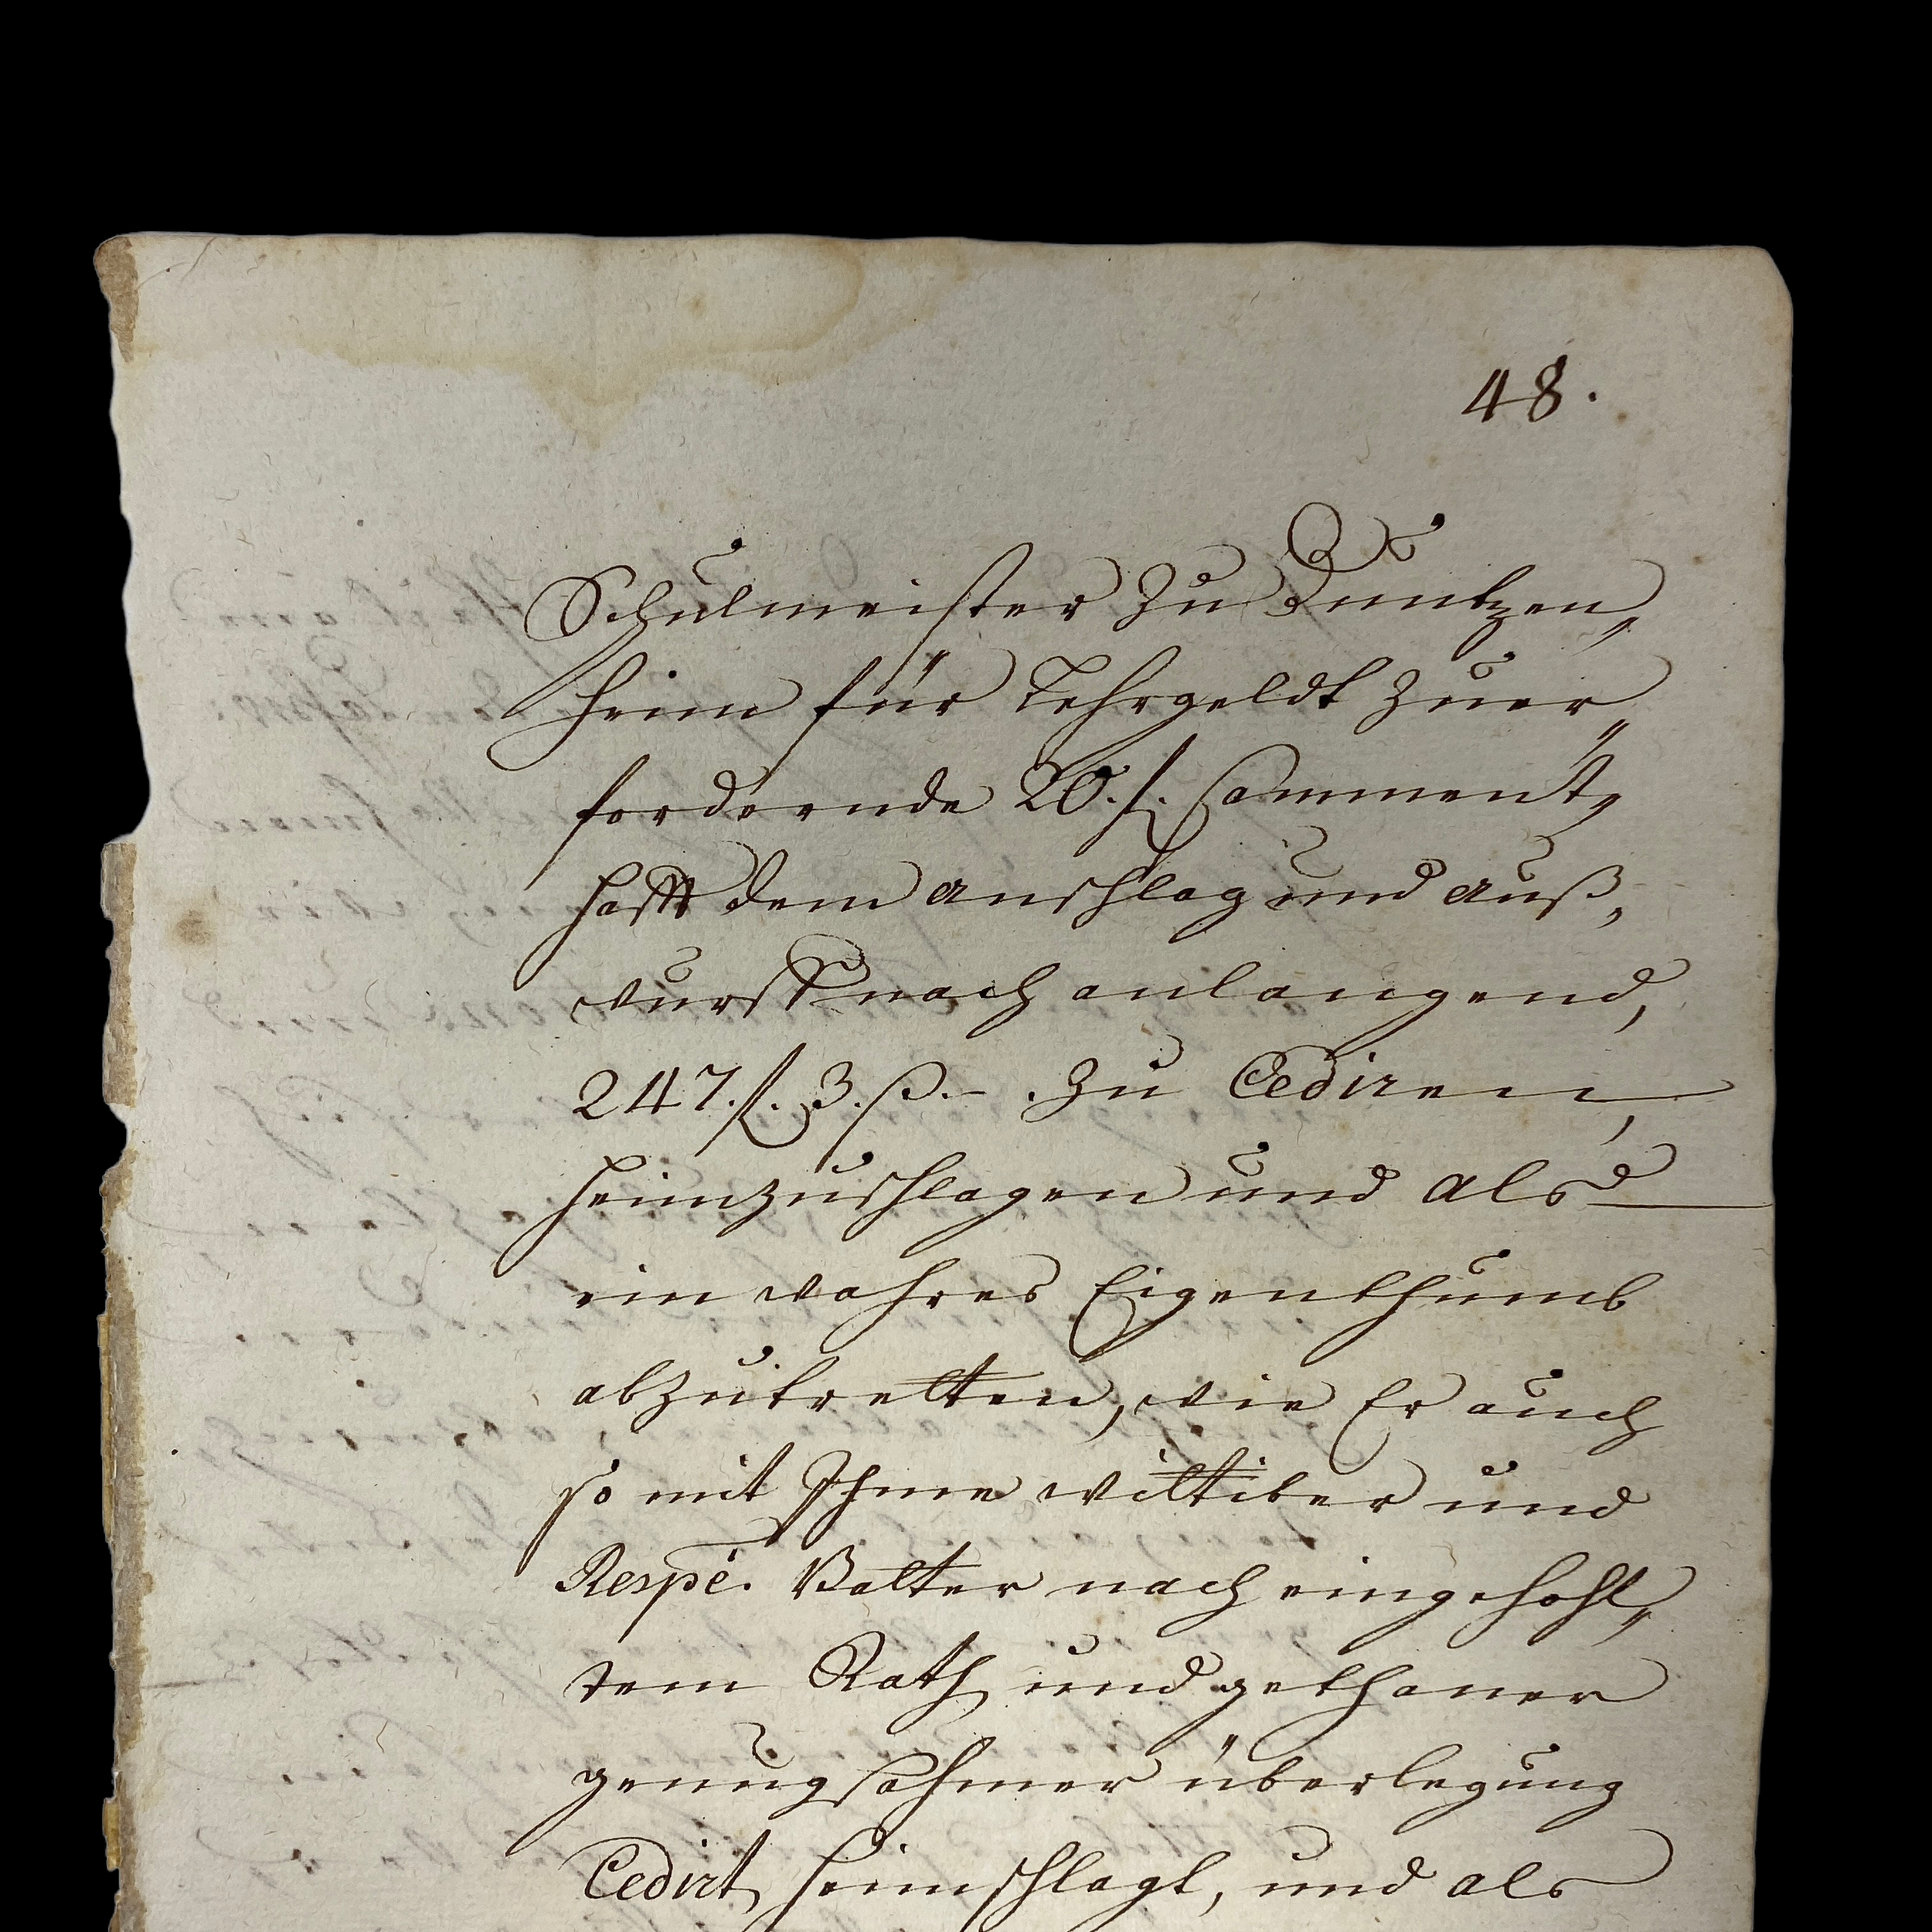 48.
Schulmeister zu Duntzen„
heim für Lehrgeldt zuer„
fordernde 20. f. samment„
hafft dem anschlag und auß„
wurff nach anlangend,
247. f. 3. ß. – . zu Cediren,
heimzuschlagen und als
ein wahres Eigenthumb
abzutretten, wie Er auch
so mit Ihme Wittiber und
Respē. Vatter nach eingehohl„
tem Rath und gethaner
genugsahmer überlegung
Cedirt, heimschlagt, und als